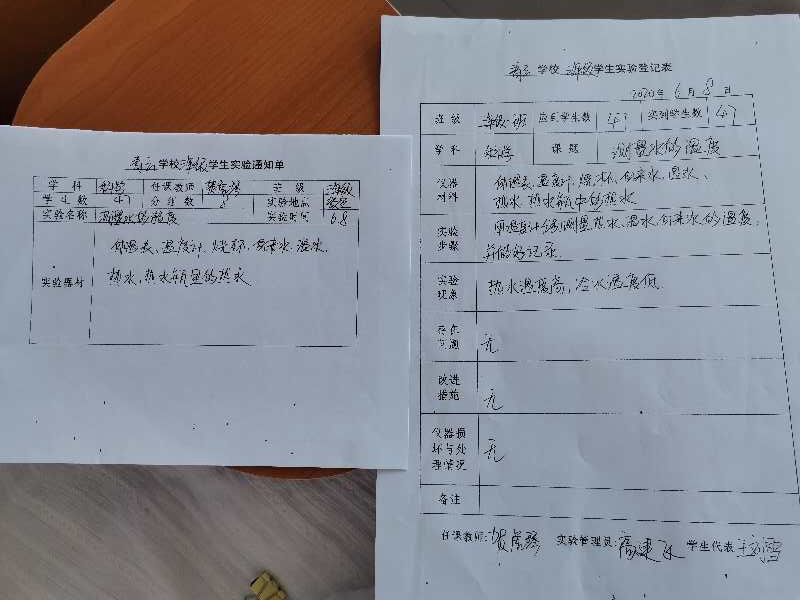 学校 学生实验通知单
学科 科学 任课教师 班级
学生数 47 分组数 8 实验地点
实验名称 测量水的温度 实验时间 6.8
实验器材 体温表、温度计、烧杯、自来水、温水、
热水、热水瓶里的热水
学校 学生实验登记表
2020年6月8日
班级 应到学生数 47 实到学生数 47
学科 科学 课题 测量水的温度
仪器材料 体温表、温度计、烧杯、自来水、温水、
热水、热水瓶中的热水
实验步骤 用温度计分别测量热水、温水、自来水的温度,
并做好记录
实验现象 热水温度高,冷水温度低
存在问题 无
改进措施 无
仪器损坏与处理情况 无
备注
任课教师: 实验管理员: 学生代表